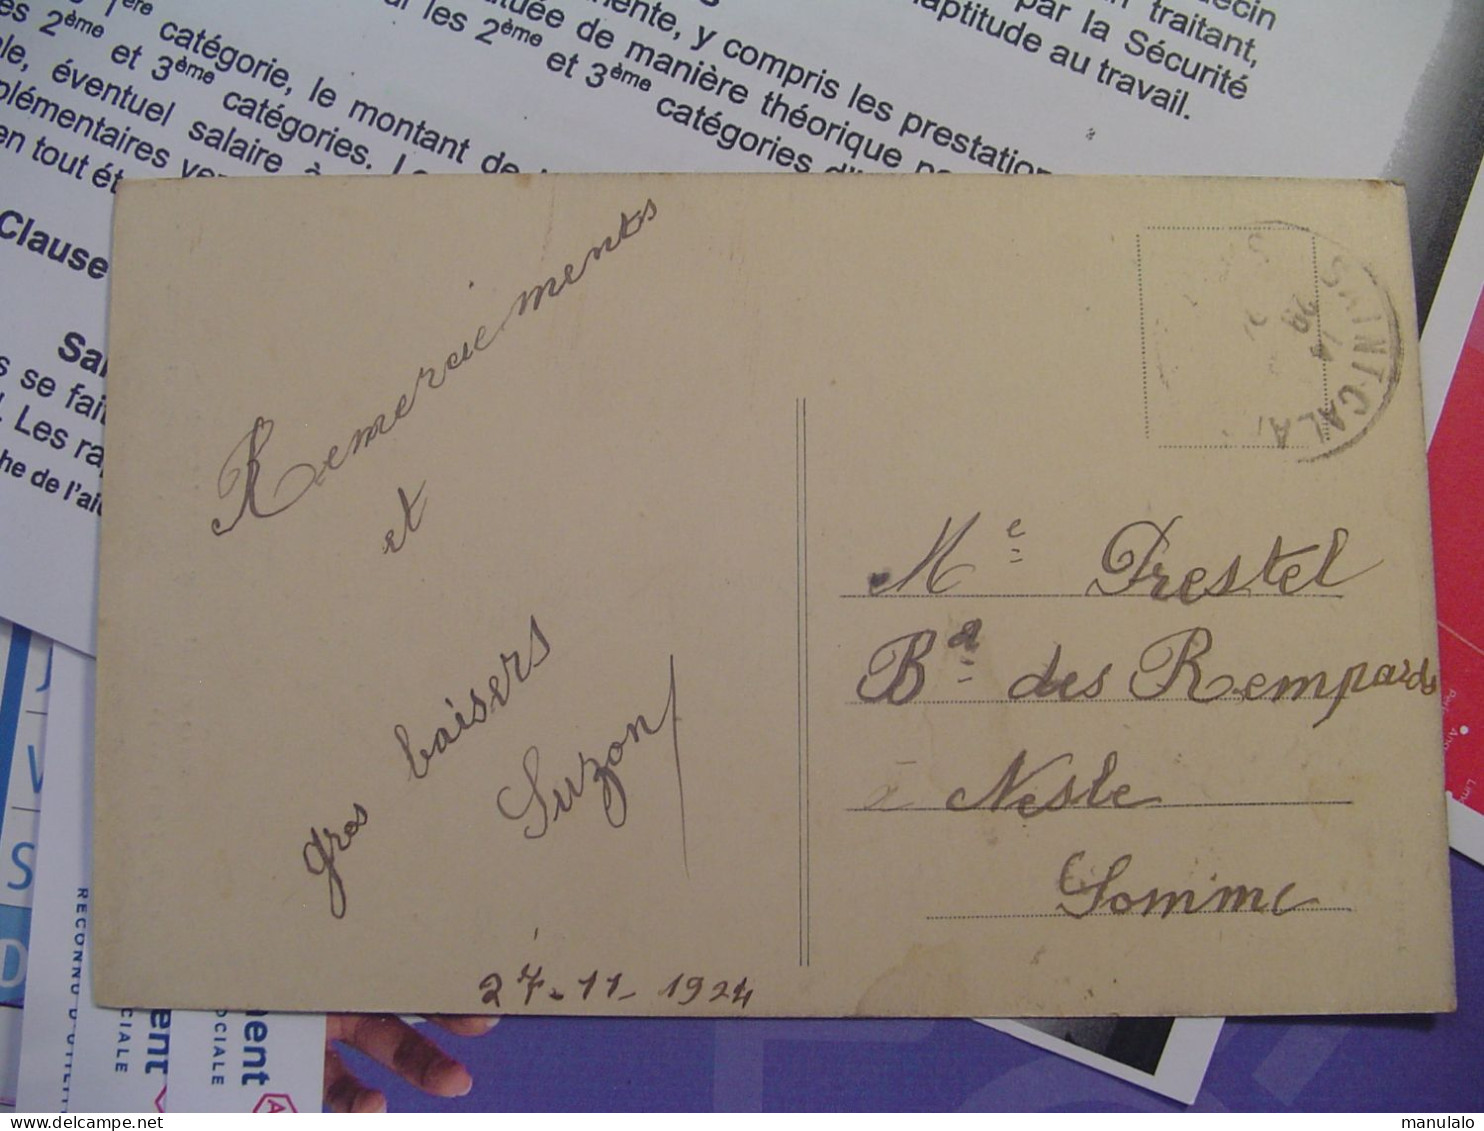 1ère catégorie, le montant de
es 2ème et 3ème catégories. Le
le, éventuel salaire à
plémentaires ver
en tout ét
Clause
Sal
s se fait
. Les ra
che de l'ai
nente, y compris les prestation
tuée de manière théorique
ur les 2ème et 3ème catégories d'
decin
n traitant,
par la Sécurité
naptitude au travail.
Remerciements
et
gros baisers
Suzon
27-11-1924
SAINT-CALA
Me Prestel
Bd des Remparts
à Nesle
Somme
RECONNU D'UTILI
CIALE
ent
OCIALE
ment
www.delcampe.net
manulalo